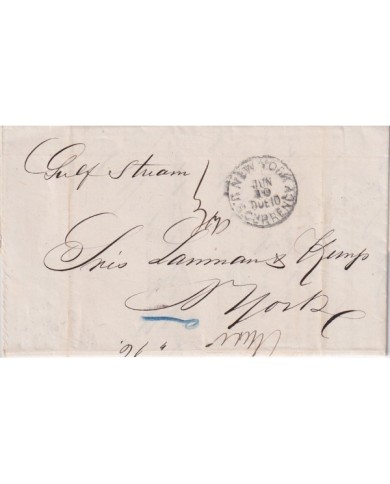 Gulf Stream
NEW YORK
JUN
10
DUE 10
U.S. CURRENCY
Sres Lanman & Kemp
N York